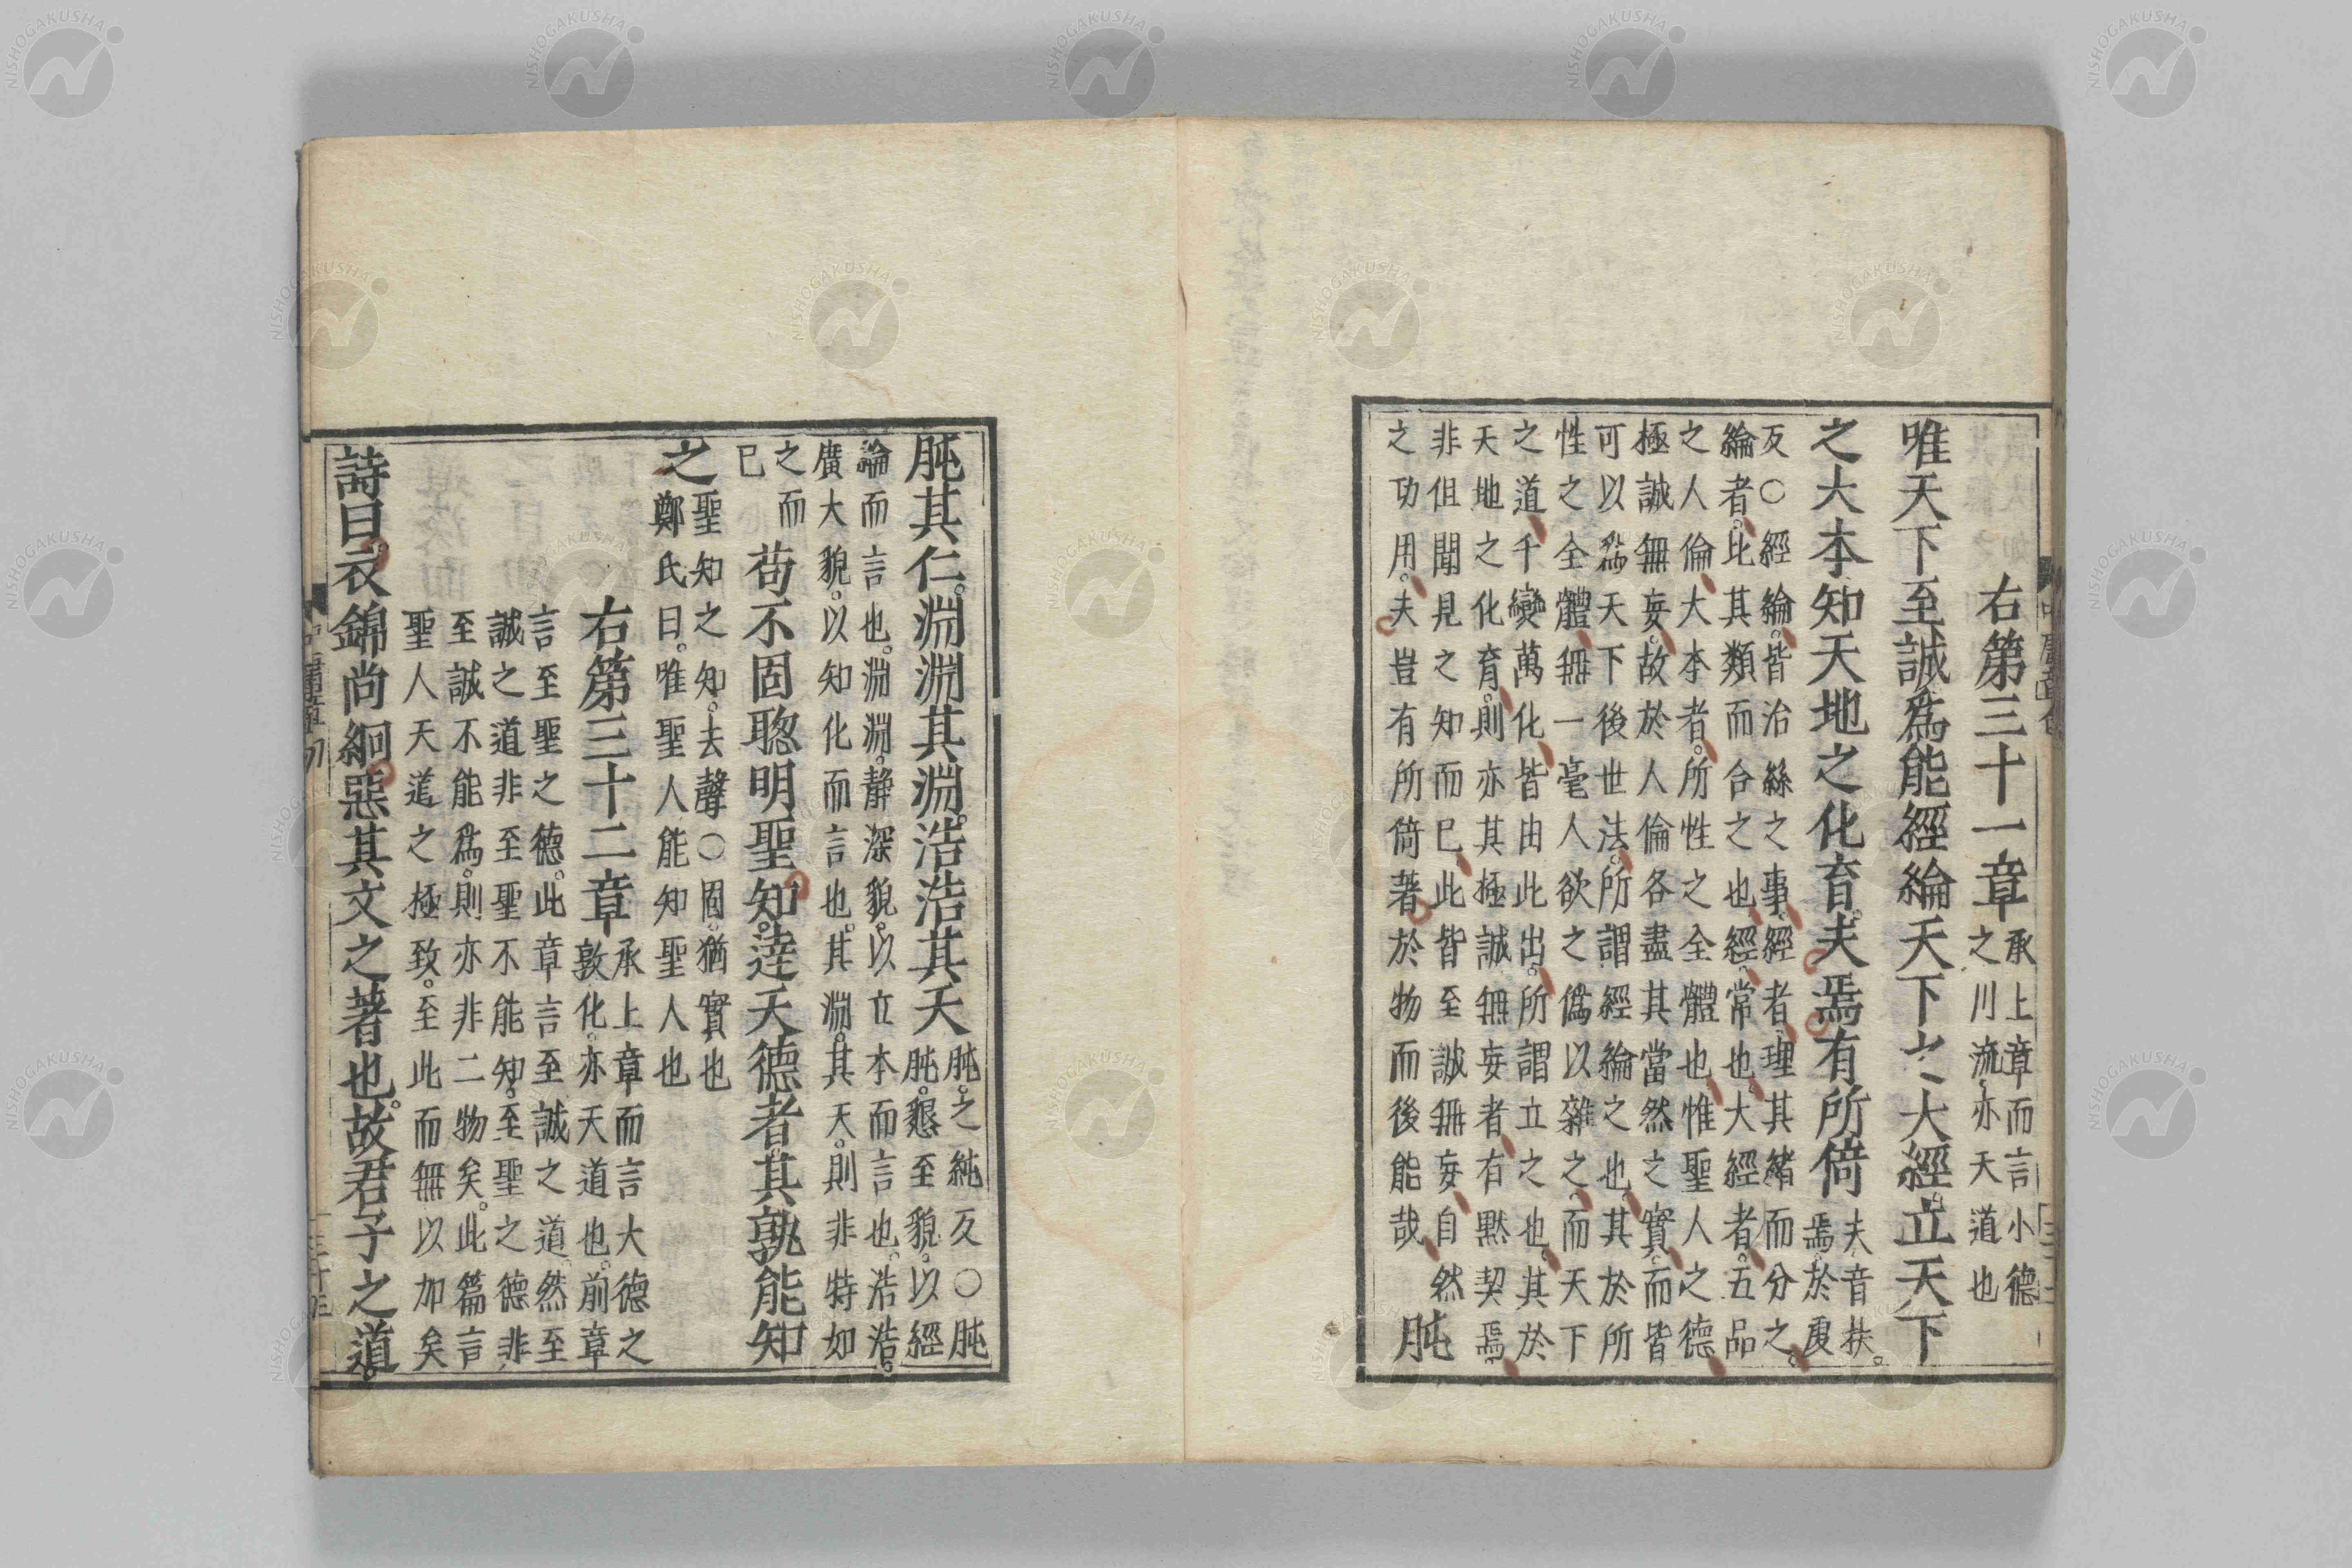 右第三十一章
承上章而言小德
之川流亦天道也
唯天下至誠爲能經綸天下之大經立天下
之大本知天地之化育夫焉有所倚
夫音扶
焉於虔
反○經綸皆治絲之事經者理其緒而分之
綸者比其類而合之也經常也大經者五品
之人倫大本者所性之全體也惟聖人之德
極誠無妄故於人倫各盡其當然之實而皆
可以爲天下後世法所謂經綸之也其於所
性之全體無一毫人欲之僞以雜之而天下
之道千變萬化皆由此出所謂立之也其於
天地之化育則亦其極誠無妄者有默契焉
非但聞見之知而已此皆至誠無妄自然
之功用夫豈有所倚著於物而後能哉
肫
肫其仁淵淵其淵浩浩其天
肫之純反○肫
肫懇至貌以經
綸而言也淵淵靜深貌以立本而言也浩浩
廣大貌以知化而言也其淵其天則非特如
之而
已
苟不固聰明聖知達天德者其孰能知
之
聖知之知去聲○固猶實也
鄭氏曰唯聖人能知聖人也
右第三十二章
承上章而言大德之
敦化亦天道也前章
言至聖之德此章言至誠之道然至
誠之道非至聖不能知至聖之德非
至誠不能爲則亦非二物矣此篇言
聖人天道之極致至此而無以加矣
詩曰衣錦尚絅惡其文之著也故君子之道